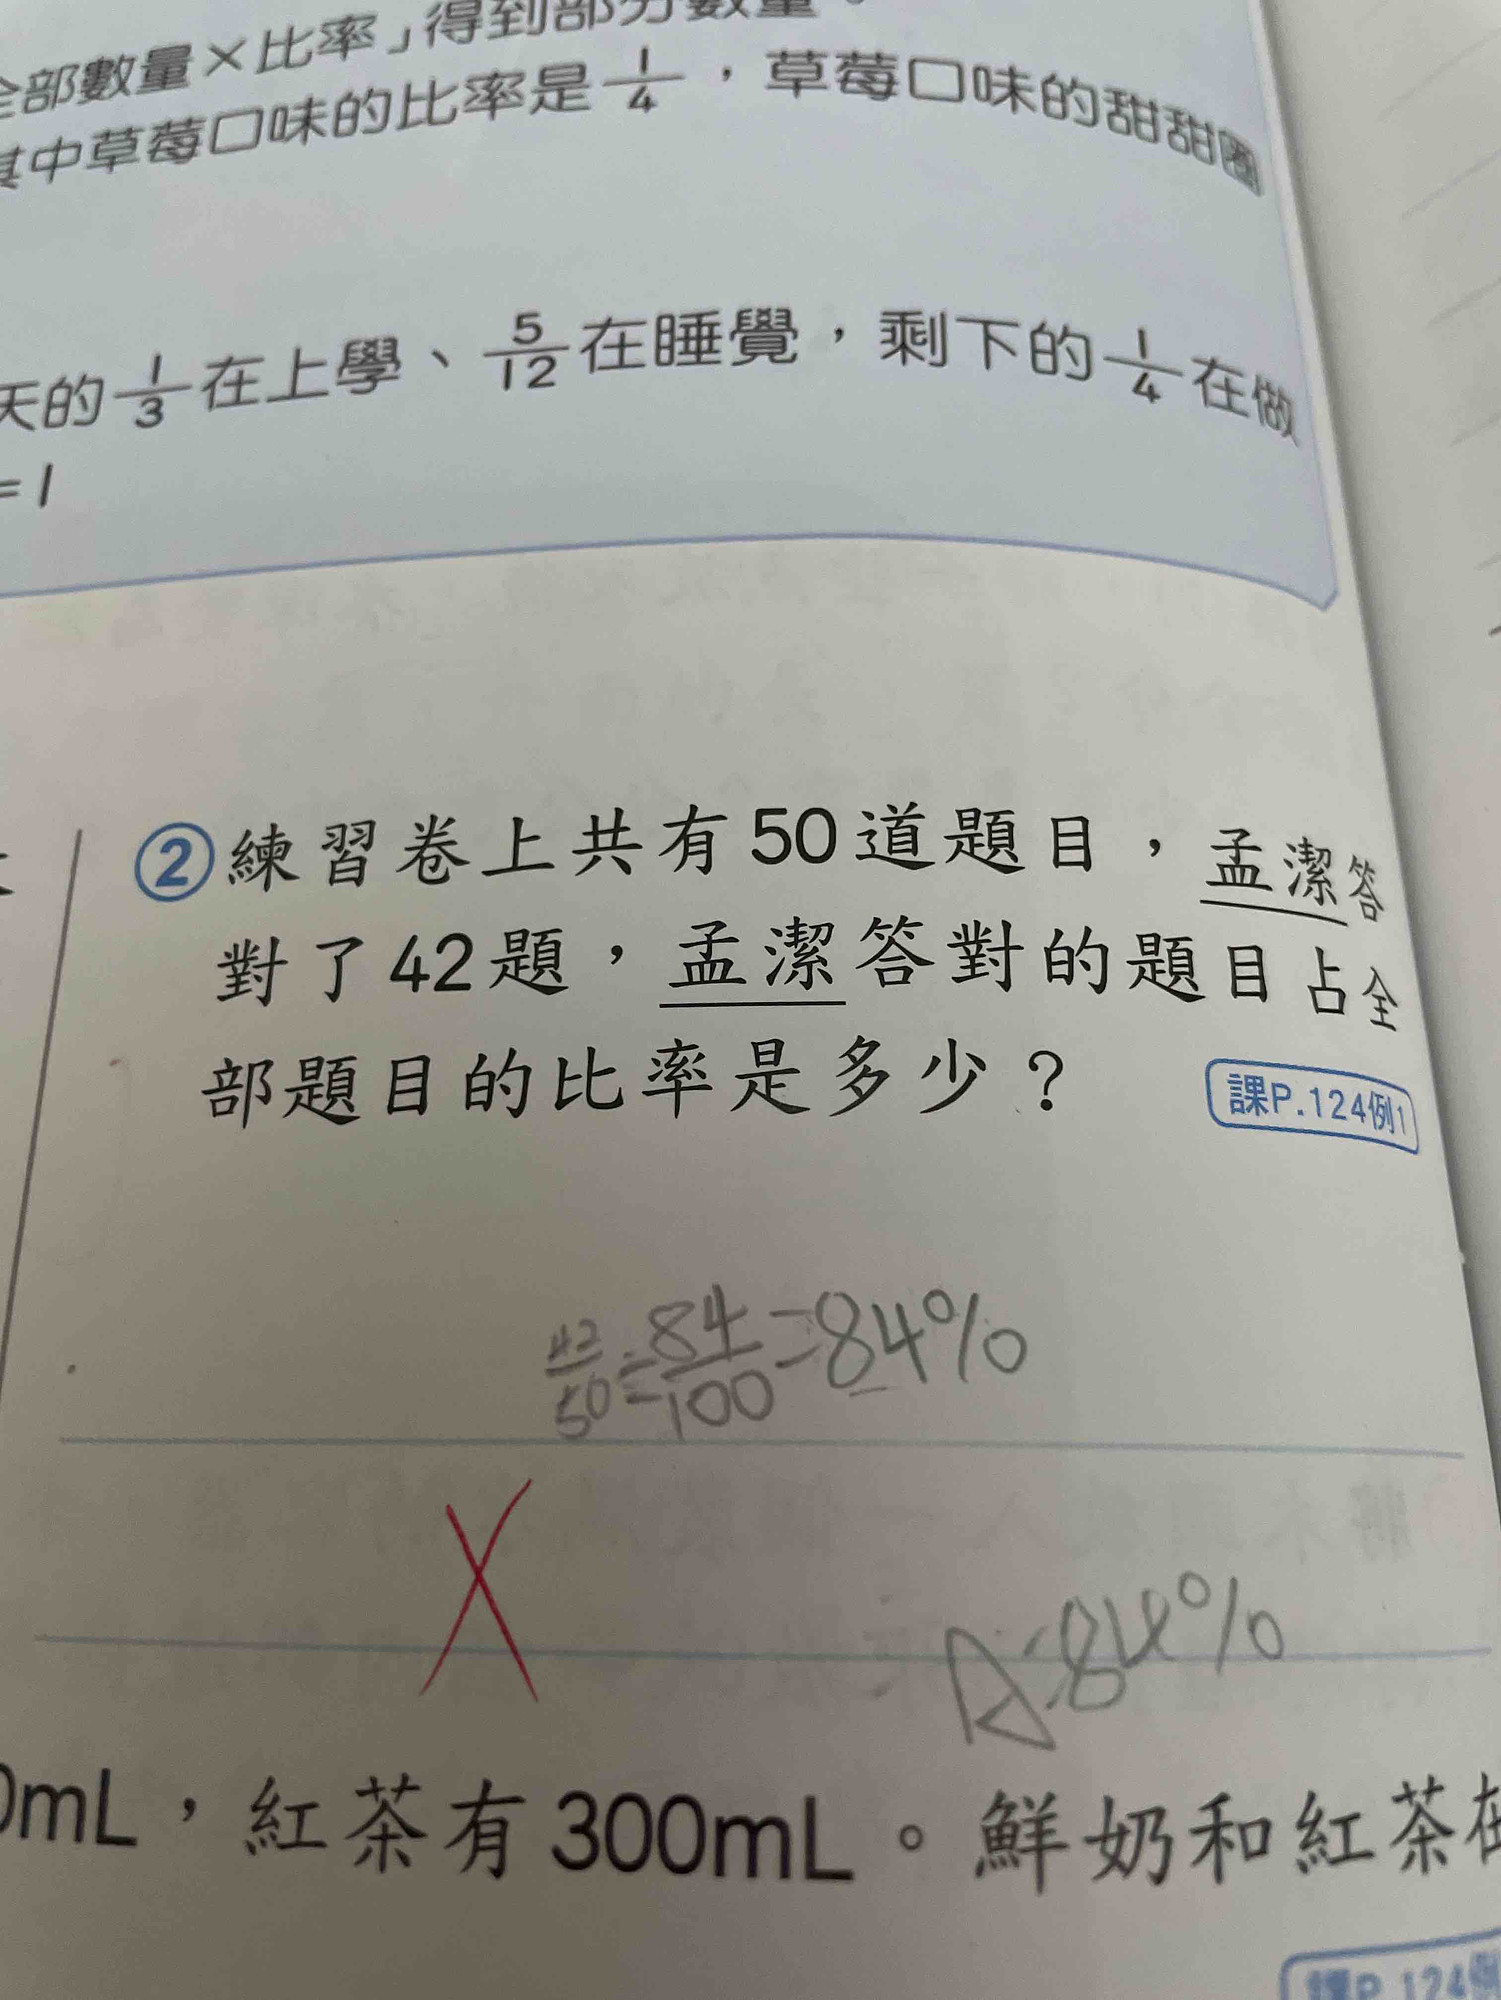 全部數量×比率」得到部分數量。
其中草莓口味的比率是1/4，草莓口味的甜甜圈
天的1/3在上學、5/12在睡覺，剩下的1/4在做
=1
②練習卷上共有50道題目，孟潔答
對了42題，孟潔答對的題目占全
部題目的比率是多少？
課P.124例1
42/50=84/100=84%
A:84%
0mL，紅茶有300mL。鮮奶和紅茶
課P.124例